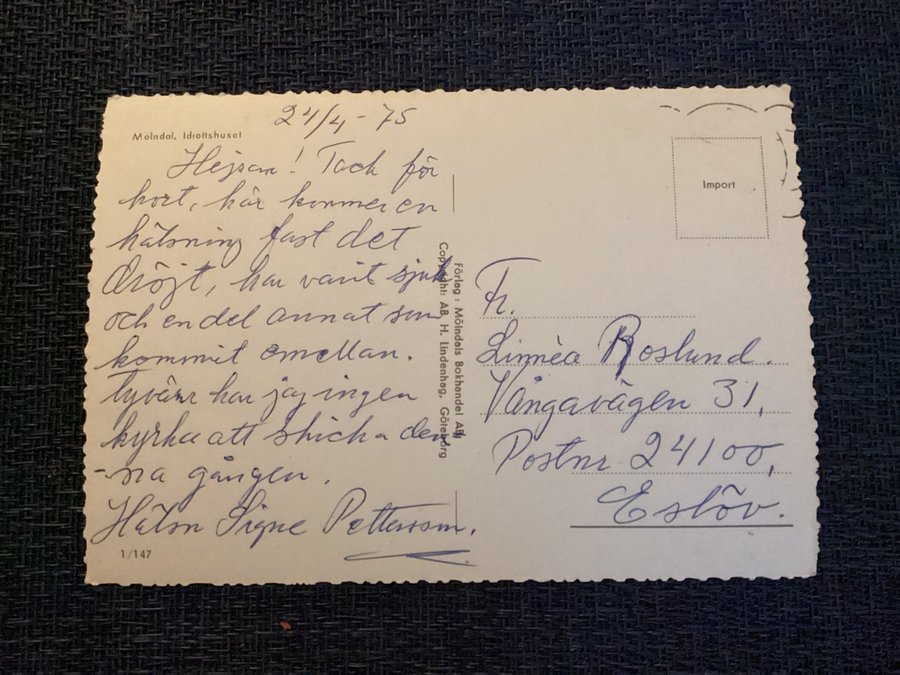 Mölndal. Idrottshuset
24/4 - 75
Hejsan! Tack för
kort, här kommer en
hälsning fast det
dröjt, har varit sjuk
och en del annat som
kommit emellan.
Tyvärr har jag ingen
kyrka att skicka den
-na gången.
Hälsn Signe Pettersson.
1/147
Förlag: Mölndals Bokhandel AB
Copyright: AB. H. Lindenhag, Göteborg
Import
Fr.
Linnèa Roslund.
Vångavägen 31,
Postnr 24100,
Eslöv.